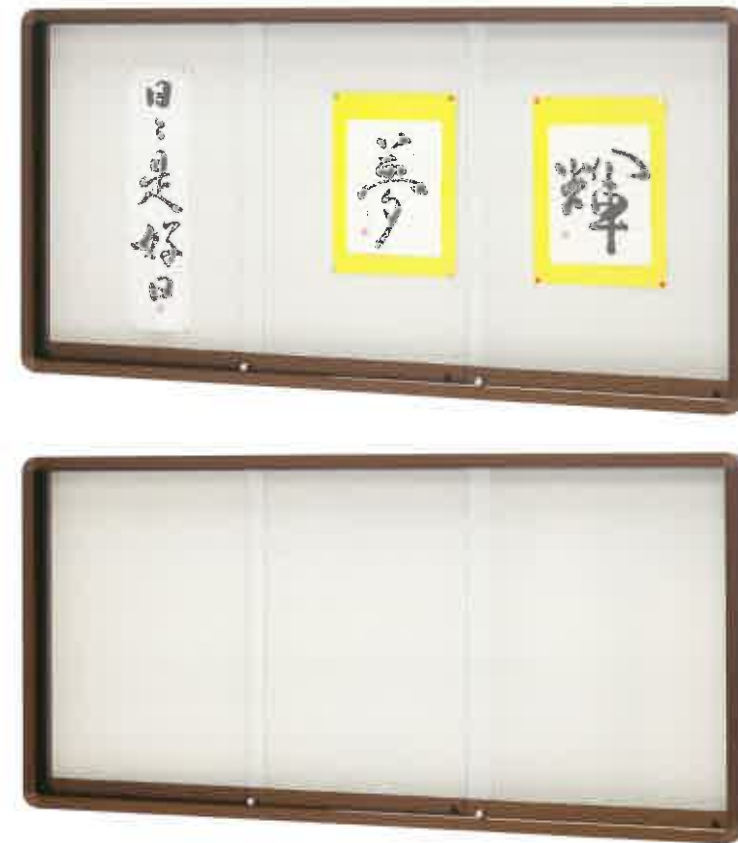 日々是好日
夢
輝